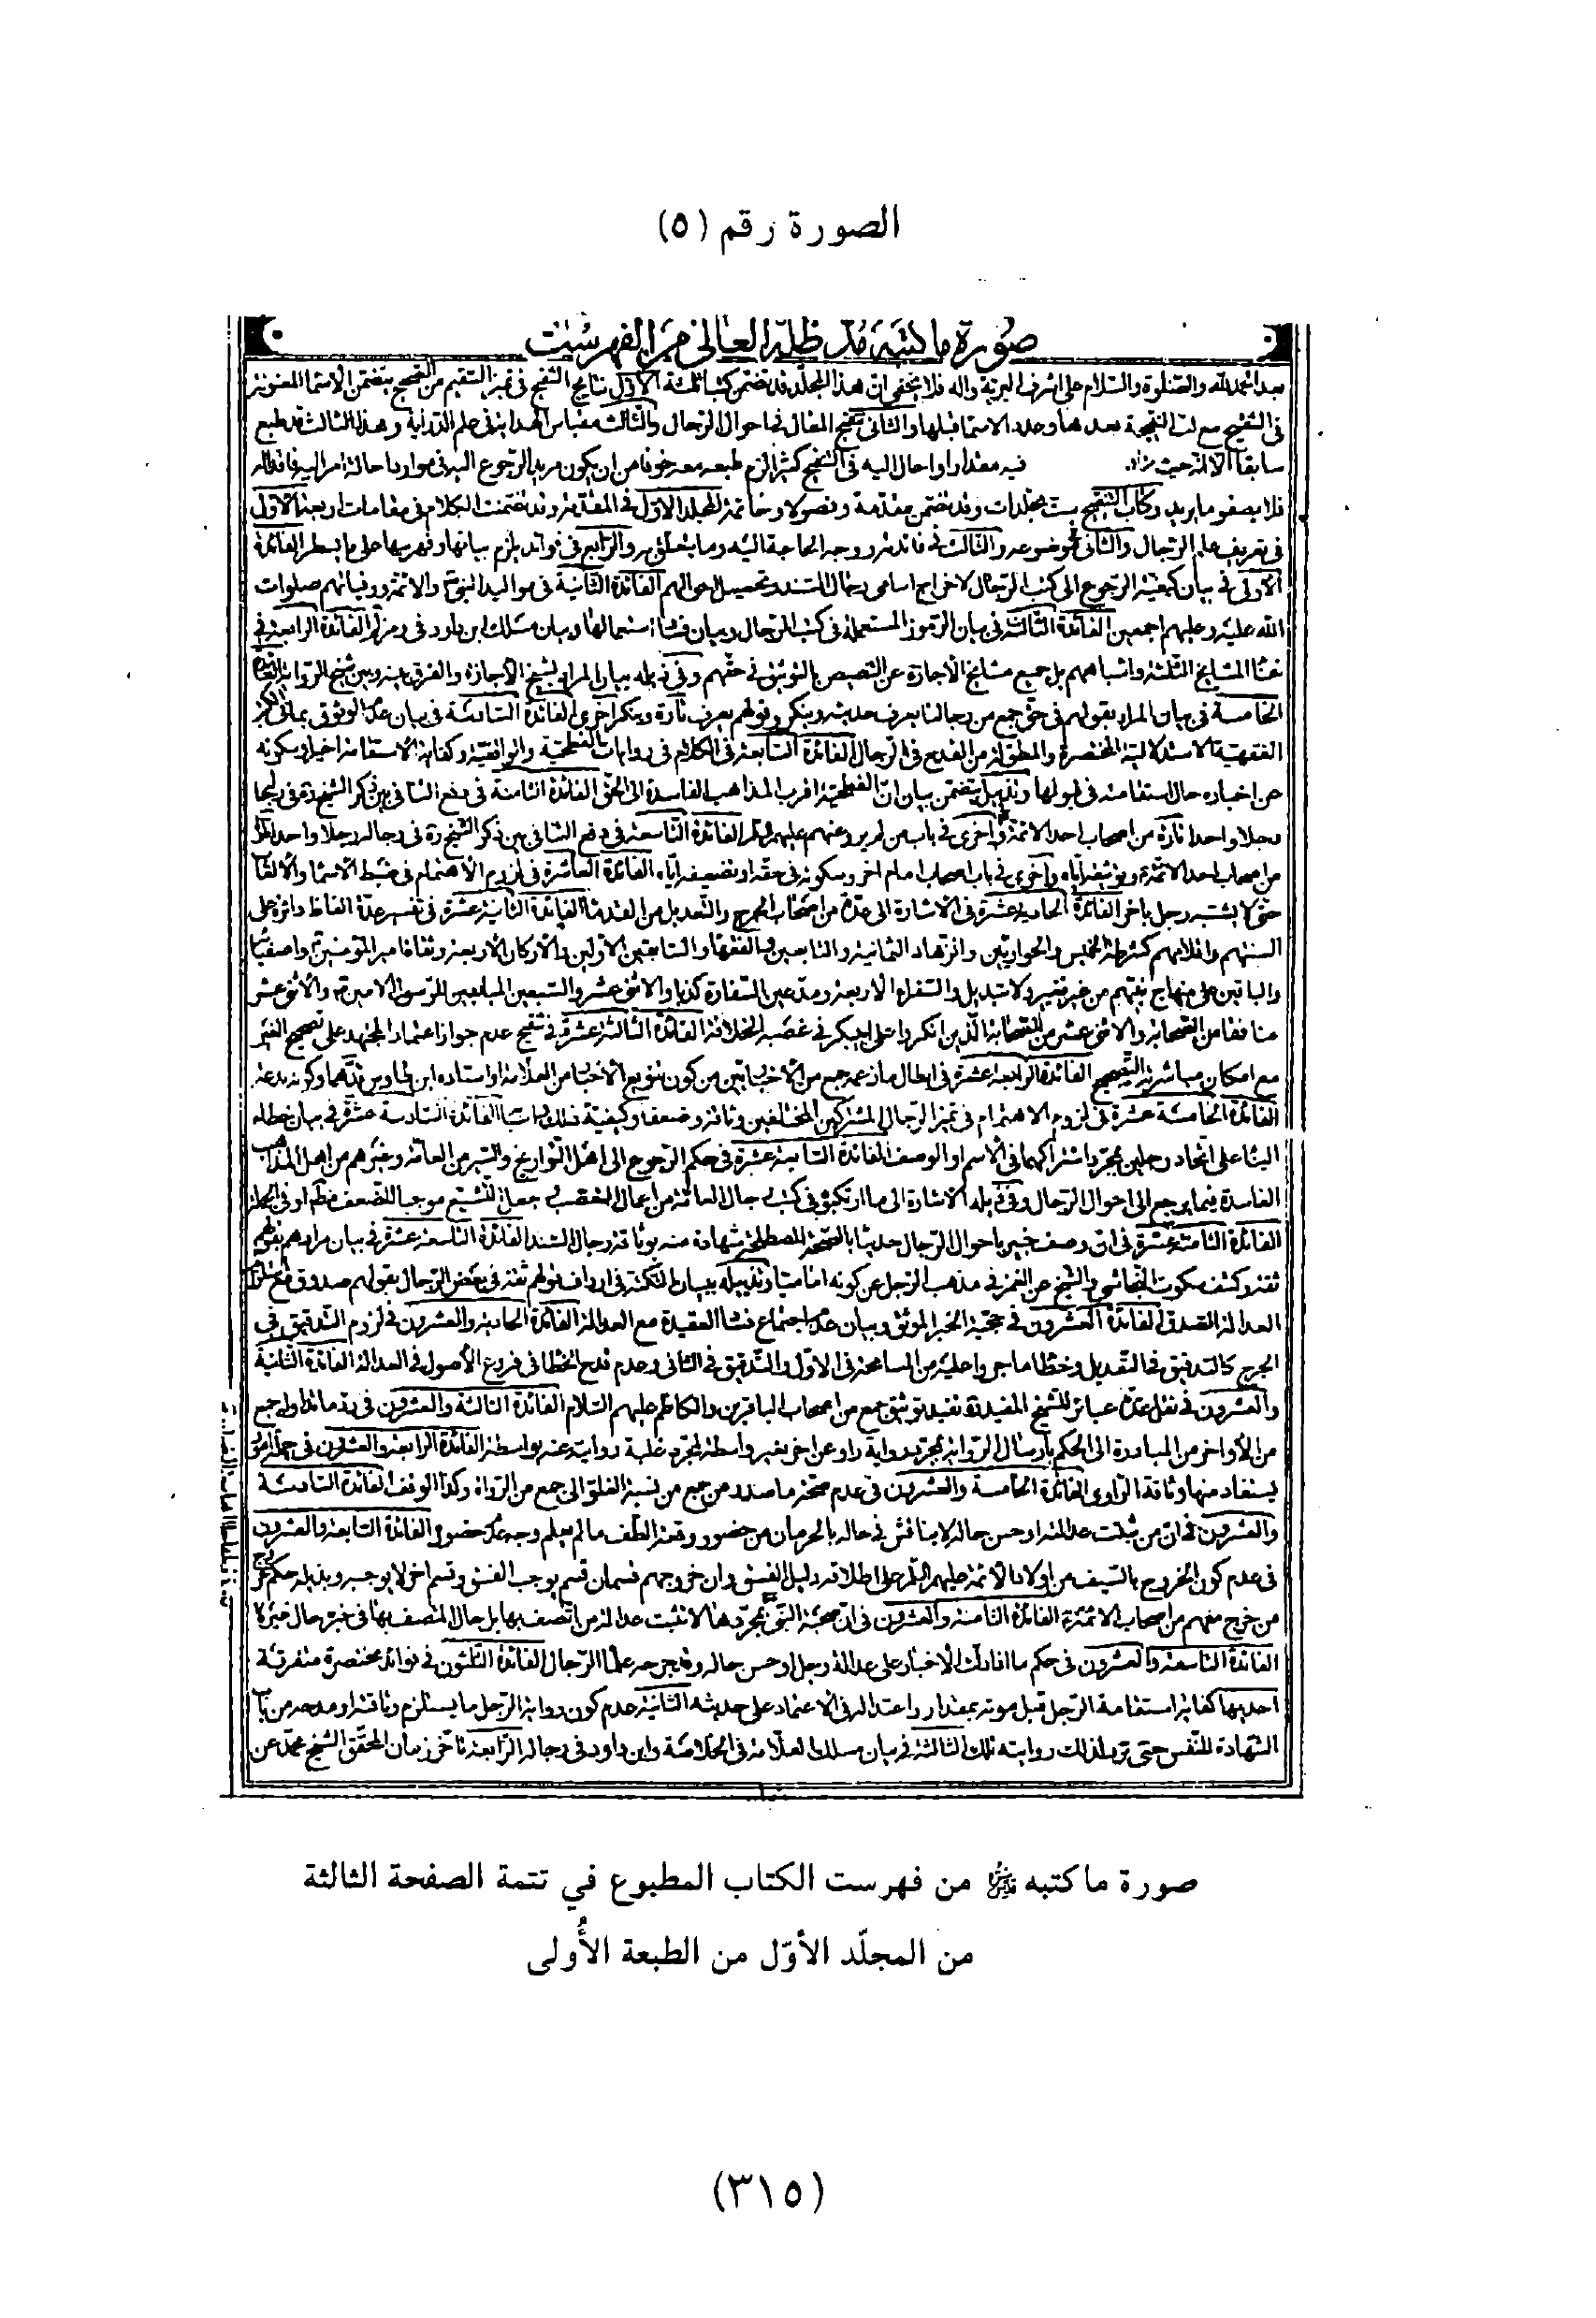 الصورة رقم (٥)
صورة ما كتبه مد ظله العالى من الفهرست
بعد الحمد لله والصّلوة والسّلام على اشرف البريّة واله فلا يخفى انّ هذا المجلّد قد تضمّن كتبا ثلثة الاوّل نتايج التّنقيح فى تميز السّقيم من الصّحيح يتضمّن الاسماء المعنونة
فى التّنقيح مع لبّ النّتيجة بعدها وعدد الاسماء قبلها والثّانى تنقيح المقال فى احوال الرّجال والثّالث مقباس الهداية فى علم الدّراية وهذا الثالث قد طبع
سابقا الّا انّه حيث زاد فيه مقدارا واحال اليه فى التّنقيح كثيرا لزم طبعه معه خوفا من ان يكون مريد الرّجوع اليه فى موارد احالة امر اليه فاقدا له
فلا يصفو ما يريد وكتاب التّنقيح ستّ مجلّدات وقد تضمّن مقدّمة وفصولا وخاتمة المجلّد الاوّل فى المقدّمة وقد تضمّنت الكلام فى مقامات اربعة الاوّل
فى تعريف علم الرّجال والثّانى فى موضوعه والثّالث فى فائدته ووجه الحاجة اليه وما يتعلّق به والرّابع فى فوائد يلزم بيانها وفهرسها على ما يسطر الفائدة
الاولى فى بيان كيفيّة الرّجوع الى كتب الرّجال لاخراج اسامى رجال السّند وتحصيل احوالهم الفائدة الثّانية فى مواليد النبىّ والائمّة ووفياتهم صلوات
الله عليه وعليهم اجمعين الفائدة الثّالثة فى بيان الرّموز المستعملة فى كتب الرّجال وبيان منشأ استعمالها وبيان مسلك ابن داود فى رمزه الفائدة الرابعة فى
غناء المشايخ الثّلثة واشباههم بل جميع مشايخ الاجازة عن التّنصيص بالتّوثيق فى حقّهم وفى ذيله بيان المراد بشيخ الاجازة والفرق بينه وبين شيخ الرّواية الفائدة
الخامسة فى بيان المراد بقولهم فى حقّ جمع من رجالنا يعرف حديثه وينكر وقولهم يعرف تارة وينكر اخرى الفائدة السّادسة فى بيان عدم الوثوق بما فى الكتب
الفقهيّة الاستدلاليّة المختصرة والمطوّلة من القدح فى الرّجال الفائدة السّابعة فى الكلام فى روايات الفطحيّة والواقفيّة وكفاية الاستقامة اخيرا وسكوته
عن اخباره حال استقامته فى قبولها وتذييل يتضمّن بيان انّ الفطحيّة اقرب المذاهب الفاسدة الى الحقّ الفائدة الثامنة فى دفع التنافى بين ذكر الشيخ ره فى رجاله
رجلا واحدا تارة من اصحاب احد الائمّة واخرى فى باب من لم يرو عنهم عليهم السّلم الفائدة التّاسعة فى دفع التنافى بين ذكر الشيخ ره فى رجاله رجلا واحدا تارة
من اصحاب احد الائمّة وتوثيقه ايّاه واخرى فى باب اصحاب امام اخر وسكوته فى حقّه او تضعيفه ايّاه الفائدة العاشرة فى لزوم الاهتمام فى ضبط الاسماء والالقاب
حتّى لا يشتبه رجل باخر الفائدة الحادية عشرة فى الاشارة الى عدّة من اصحاب الجرح والتّعديل من القدماء الفائدة الثّانية عشرة فى تفسير عدّة الفاظ دائرة على
السنتهم واقلامهم كشرطة الخميس والحواريّين والزهّاد الثمانية والتابعين والفقهاء والسّابقين الاوّلين والاركان الاربعة وثقات امير المؤمنين واصفيائه
والباقين على منهاج نبيّهم من غير تغيير ولا تبديل والسّفراء الاربعة ومدّعين السّفارة كذبا والاثنى عشر والسّبعين المبايعين للرّسول الامين والاثنى عشر
منافقا من الصّحابة والاثنى عشر من الصّحابة الّذين انكروا على ابى بكر فى غصبه الخلافة الفائدة الثّالثة عشرة فى تنقيح عدم جواز اعتماد المجتهد على تصحيح الغير
مع امكان مباشرته التّصحيح الفائدة الرابعة عشرة فى ابطال ما زعمه جمع من الاخباريّين من كون تنويع الاخبار من العلّامة او استاده ابن طاوس قدّهما وكونه بدعة
الفائدة الخامسة عشرة فى لزوم الاهتمام فى تميز الرّجال المشتركين المختلفين وثاقة وضعفا وكيفيّة ذلك واسبابه الفائدة السّادسة عشرة فى بيان خطاء
البناء على اتّحاد رجلين بمجرّد اشتراكهما فى الاسم او الوصف الفائدة السّابعة عشرة فى حكم الرّجوع الى اهل التّواريخ والسّير من العامّة وغيرهم من اهل المذاهب
الفاسدة فيما يرجع الى احوال الرّجال وفى ذيله الاشارة الى ما ارتكبوه فى كتب رجال العامّة من اعمال التّعصّب وجعل التّشيّع موجبا للضّعف
الفائدة الثّامنة عشرة فى انّ وصف خبير باحوال الرّجال حديثا بالصّحّة المصطلحة شهادة منه بوثاقة رجال السّند الفائدة التّاسعة عشرة فى بيان مرادهم بقولهم
ثقة وكشف سكوت النّجاشى والشّيخ عن الغمز فى مذهب الرّجل عن كونه اماميّا وتذييله ببيان النّكتة فى ارداف قولهم ثقة فى بعض الرّجال بقولهم صدوق مع استلزام
العدالة الصّدق الفائدة العشرون فى حجّية الخبر الموثّق وبيان عدم اجتماع فساد العقيدة مع العدالة الفائدة الحادية والعشرون فى لزوم التّدقيق فى
الجرح كالتدقيق فى التّعديل وخطاء ما جرى واحد عليه من المسامحة فى الاوّل والتّدقيق فى الثانى وعدم قدح الخطاء فى فروع الأصول فى العدالة الفائدة الثّانية
والعشرون فى نقل عدّة عبائر للشّيخ المفيد قده تفيد توثيق جمع من اصحاب الباقرين والكاظم عليهم السّلام الفائدة الثالثة والعشرون فى ردّ ما تداوله جمع
من الأواخر من المبادرة الى الحكم بارسال الرّواية بمجرّد رواية راو عن اخر بغير واسطة لمجرّد غلبة روايته عنه بواسطة الفائدة الرابعة والعشرون فى جملة امور
يستفاد منها وثاقة الرّاوى الفائدة الخامسة والعشرون فى عدم صحّة ما صدر من جمع من نسبة الغلوّ الى جمع من الرّواة وكذا الوقف الفائدة السّادسة
والعشرون فى انّ من ثبتت عدالته او حسن حاله لا يناقش فى حاله بالحرمان من حضور وقعة الطّف ما لم يعلم وجه عدم حضوره الفائدة السّابعة والعشرون
فى عدم كون الخروج بالسّيف من اولاد الائمّة عليهم السّلم على اطلاقه دليل الفسق وان خروجهم قسمان قسم يوجب الفسق وقسم اخر لا يوجبه وبذيله حكم خروج
من خرج معهم من اصحاب الائمّة الفائدة الثّامنة والعشرون فى انّ صحبة النّبى بمجرّدها لا تثبت عدالة من اتّصف بها بل حال المتّصف بها فى خبره حال غيره
الفائدة التّاسعة والعشرون فى حكم ما افادت الأخبار على عدالة رجل او حسن حاله وقد جرحه علماء الرّجال الفائدة الثّلثون فى فوائد مختصرة متفرّقة
احديها كفاية استقامة الرّجل قبل موته بمقدار رواعتداله فى الاعتماد على حديثه الثّانية عدم كون رواية الرّجل ما يستلزم وثاقته او مدحه من باب
الشّهادة للنّفس حتى تردّ لذلك روايته تلك الثالثة فى بيان مسلك العلّامة فى الخلاصة وابن داود فى رجاله الرّابعة تاخّر زمان المحقّق الشّيخ محمّد عن
صورة ما كتبه من فهرست الكتاب المطبوع في تتمة الصفحة الثالثة
من المجلّد الأوّل من الطبعة الأُولى
(٣١٥)